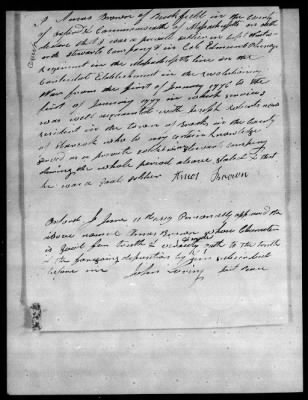 I Amos Brown of Brookfield in the County
of Commonwealth of Massachusetts on oath
declare that I was a private soldier in Capt
Stewarts Company & in Col Edmund Phinneys
Regiment in the Massachusetts line on the
Continental Establishment in the revolutionary
War from the first of January 1776 to the
first of January 1777 in which service I
was well acquainted with Joseph now
resident in the town of in the County
of Hancock who to my certain knowledge
served as a private soldier in Stewarts company
during the whole period above stated & that
he was a good soldier Amos Brown
Oxford Ss June 11 Personally appeared the
above named Amos Brown whose Character
is good for truth & made oath to the truth
of the foregoing deposition by him subscribed
before me John Just Peace